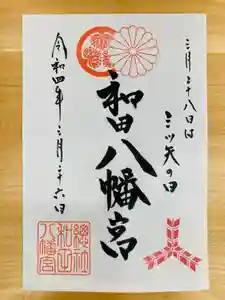 三月二十八日は
三ツ矢の日
和田八幡宮
令和四年三月二十六日
總社
和田
八幡宮